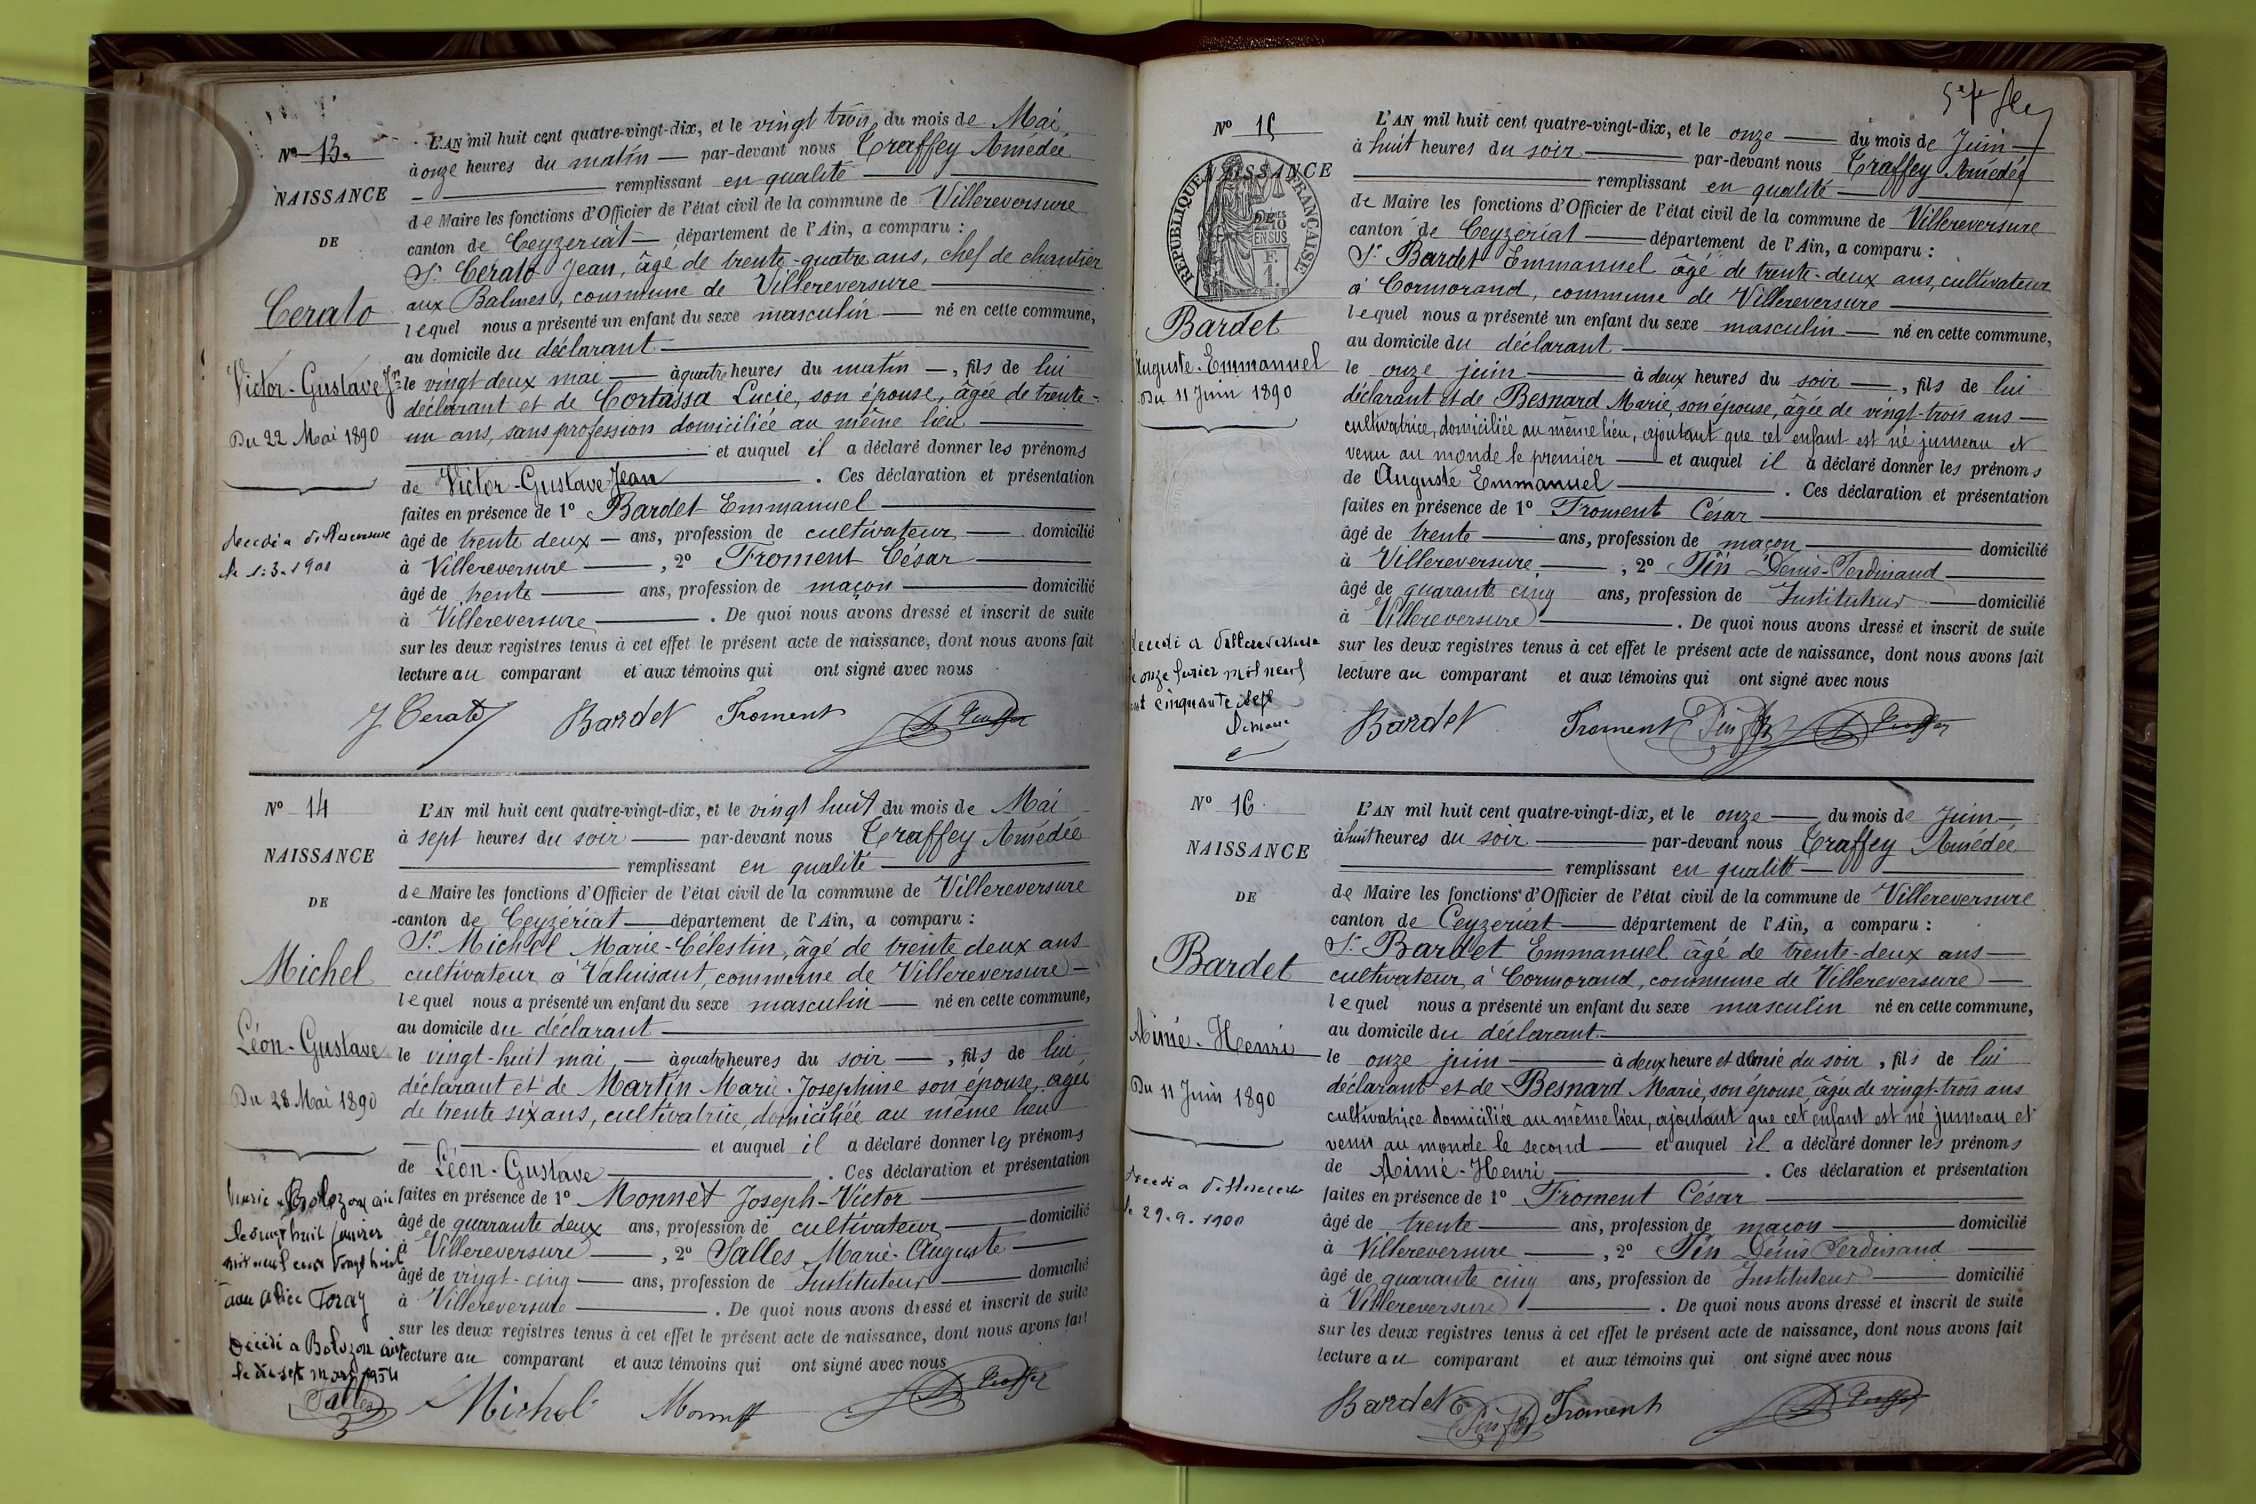 No 13.
NAISSANCE
DE
Cerato
Victor-Gustave Jn
Du 22 Mai 1890
décédé à Villereversure
le 1.3.1901
L'AN mil huit cent quatre-vingt-dix, et le vingt trois du mois de Mai
à onze heures du matin — par-devant nous Traffey Amédée
remplissant en qualité
de Maire les fonctions d'Officier de l'état civil de la commune de Villereversure
canton de Ceyzériat — département de l'Ain, a comparu :
Sr Cérato Jean, âgé de trente-quatre ans, chef de chantier
aux Balmes, commune de Villereversure
lequel nous a présenté un enfant du sexe masculin — né en cette commune,
au domicile du déclarant
le vingt deux mai — à quatre heures du matin —, fils de lui
déclarant et de Cortassa Lucie, son épouse, âgée de trente-
un ans, sans profession domiciliée au même lieu
et auquel il a déclaré donner les prénoms
de Victor-Gustave-Jean . Ces déclaration et présentation
faites en présence de 1º Bardet Emmanuel
âgé de trente deux — ans, profession de cultivateur — domicilié
à Villereversure —, 2º Froment César
âgé de trente — ans, profession de maçon — domicilié
à Villereversure — . De quoi nous avons dressé et inscrit de suite
sur les deux registres tenus à cet effet le présent acte de naissance, dont nous avons fait
lecture au comparant et aux témoins qui ont signé avec nous
J Cerato Bardet Froment A Traffey
No 14
NAISSANCE
DE
Michel
Léon-Gustave
Du 28 Mai 1890
Marié à Bolozon ain
le vingt huit janvier
mil neuf cent vingt huit
avec Alice Foray
Décédé à Bolozon ain
le dix sept mars 1954
L'AN mil huit cent quatre-vingt-dix, et le vingt huit du mois de Mai
à sept heures du soir — par-devant nous Traffey Amédée
remplissant en qualité
de Maire les fonctions d'Officier de l'état civil de la commune de Villereversure
canton de Ceyzériat — département de l'Ain, a comparu :
Sr Michel Marie-Célestin, âgé de trente deux ans
cultivateur à Valuisant, commune de Villereversure —
lequel nous a présenté un enfant du sexe masculin — né en cette commune,
au domicile du déclarant
le vingt-huit mai, — à quatre heures du soir —, fils de lui,
déclarant et de Martin Marie-Joséphine son épouse, âgée
de trente six ans, cultivatrice, domiciliée au même lieu
et auquel il a déclaré donner les prénoms
de Léon-Gustave . Ces déclaration et présentation
faites en présence de 1º Monnet Joseph-Victor
âgé de quarante deux ans, profession de cultivateur — domicilié
à Villereversure —, 2º Salles Marie-Auguste
âgé de vingt-cinq — ans, profession de Instituteur — domicilié
à Villereversure — . De quoi nous avons dressé et inscrit de suite
sur les deux registres tenus à cet effet le présent acte de naissance, dont nous avons fait
lecture au comparant et aux témoins qui ont signé avec nous
Salles Michel Monnet A Traffey
No 15
NAISSANCE
RÉPUBLIQUE FRANÇAISE
Bardet
Auguste-Emmanuel
Du 11 Juin 1890
décédé à Villereversure
le onze février mil neuf
cent cinquante sept
L'AN mil huit cent quatre-vingt-dix, et le onze — du mois de Juin —
à huit heures du soir — par-devant nous Traffey Amédée
remplissant en qualité
de Maire les fonctions d'Officier de l'état civil de la commune de Villereversure
canton de Ceyzériat — département de l'Ain, a comparu :
Sr Bardet Emmanuel âgé de trente-deux ans, cultivateur
à Cormorand, commune de Villereversure
lequel nous a présenté un enfant du sexe masculin — né en cette commune,
au domicile du déclarant
le onze juin — à deux heures du soir —, fils de lui
déclarant et de Besnard Marie, son épouse, âgée de vingt-trois ans —
cultivatrice, domiciliée au même lieu, ajoutant que cet enfant est né jumeau et
venu au monde le premier — et auquel il a déclaré donner les prénoms
de Auguste Emmanuel — . Ces déclaration et présentation
faites en présence de 1º Froment César
âgé de trente — ans, profession de maçon — domicilié
à Villereversure —, 2º Pin Denis-Ferdinand
âgé de quarante cinq ans, profession de Instituteur — domicilié
à Villereversure — . De quoi nous avons dressé et inscrit de suite
sur les deux registres tenus à cet effet le présent acte de naissance, dont nous avons fait
lecture au comparant et aux témoins qui ont signé avec nous
Bardet Froment Pin A Traffey
No 16.
NAISSANCE
DE
Bardet
Aimé-Henri
Du 11 Juin 1890
décédé à Villereversure
le 29.9.1900
L'AN mil huit cent quatre-vingt-dix, et le onze — du mois de Juin —
à huit heures du soir — par-devant nous Traffey Amédée
remplissant en qualité —
de Maire les fonctions d'Officier de l'état civil de la commune de Villereversure
canton de Ceyzériat — département de l'Ain, a comparu :
Sr Bardet Emmanuel âgé de trente-deux ans —
cultivateur à Cormorand, commune de Villereversure —
lequel nous a présenté un enfant du sexe masculin né en cette commune,
au domicile du déclarant
le onze juin — à deux heure et demie du soir, fils de lui
déclarant et de Besnard Marie, son épouse, âgée de vingt-trois ans
cultivatrice domiciliée au même lieu, ajoutant que cet enfant est né jumeau et
venu au monde le second — et auquel il a déclaré donner les prénoms
de Aimé-Henri — . Ces déclaration et présentation
faites en présence de 1º Froment César
âgé de trente — ans, profession de maçon — domicilié
à Villereversure —, 2º Pin Denis Ferdinand —
âgé de quarante cinq ans, profession de Instituteur — domicilié
à Villereversure — . De quoi nous avons dressé et inscrit de suite
sur les deux registres tenus à cet effet le présent acte de naissance, dont nous avons fait
lecture au comparant et aux témoins qui ont signé avec nous
Bardet Pin Froment A Traffey